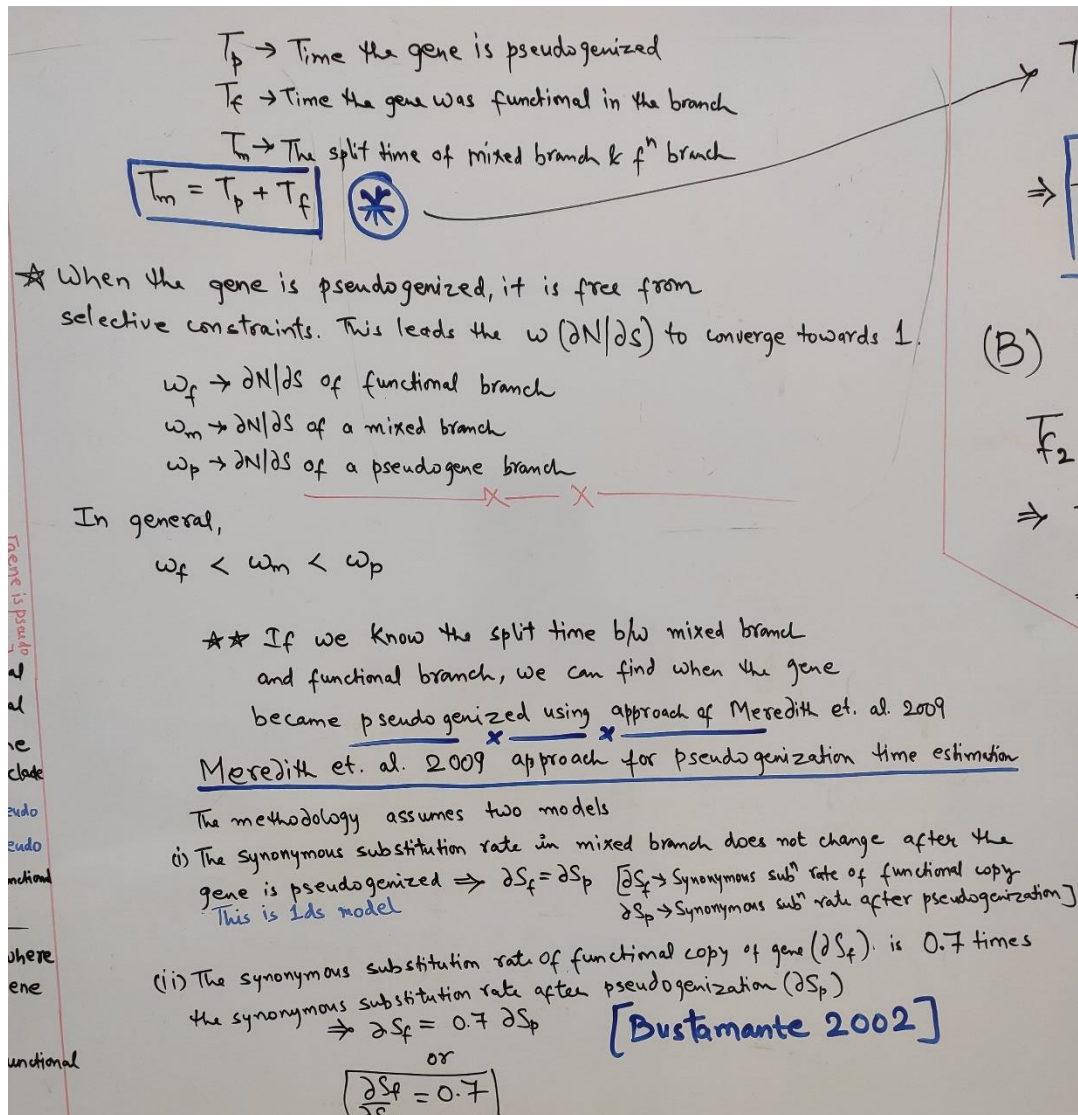 T_p → Time the gene is pseudogenized
T_f → Time the gene was functional in the branch
T_m → The split time of mixed branch & fⁿ branch
T_m = T_p + T_f
T
⇒
☆ When the gene is pseudogenized, it is free from
selective constraints. This leads the ω (∂N/∂S) to converge towards 1.
ω_f → ∂N/∂S of functional branch
ω_m → ∂N/∂S of a mixed branch
ω_p → ∂N/∂S of a pseudogene branch
x — x
(B)
T_f2
⇒
In general,
ω_f < ω_m < ω_p
☆☆ If we know the split time b/w mixed branch
and functional branch, we can find when the gene
became pseudogenized using approach of Meredith et. al. 2009
Meredith et. al. 2009 approach for pseudogenization time estimation
The methodology assumes two models
(i) The synonymous substitution rate in mixed branch does not change after the
gene is pseudogenized ⇒ ∂S_f = ∂S_p [∂S_f → Synonymous subⁿ rate of functional copy
This is 1ds model ∂S_p → Synonymous subⁿ rate after pseudogenization]
(ii) The synonymous substitution rate of functional copy of gene (∂S_f) is 0.7 times
the synonymous substitution rate after pseudogenization (∂S_p)
⇒ ∂S_f = 0.7 ∂S_p [Bustamante 2002]
or
∂S_f/∂S = 0.7
gene is pseudo
al
al
ne
clade
eudo
eudo
nctional
where
ene
unctional